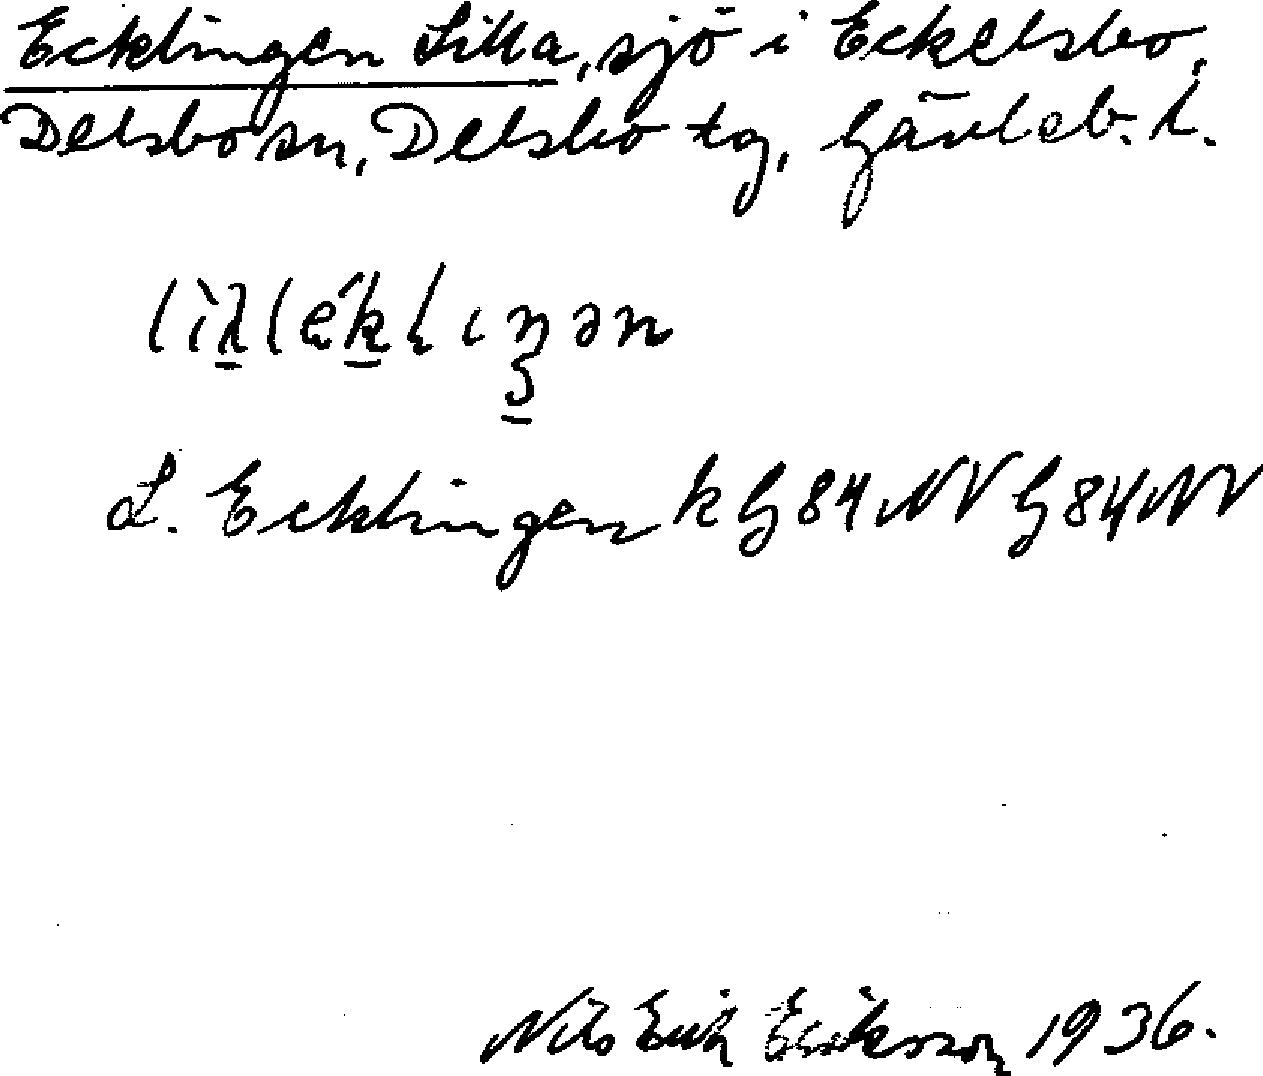 Ecklingen Lilla, sjö i Eckelsbo,
Delsbo sn, Delsbo tg, Gävleb. l.
L. Ecklingen k G 84 NV G 84 NV
Nils Erik Eriksson 1936.